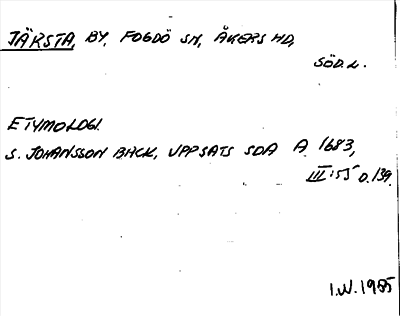 JÄRSTA, BY, FOGDÖ SN, ÅKERS HD,
SÖD.L.
ETYMOLOGI.
S. JOHANSSON BACK, UPPSATS SOA A 1683,
III:55 O.139.
I.W. 1985